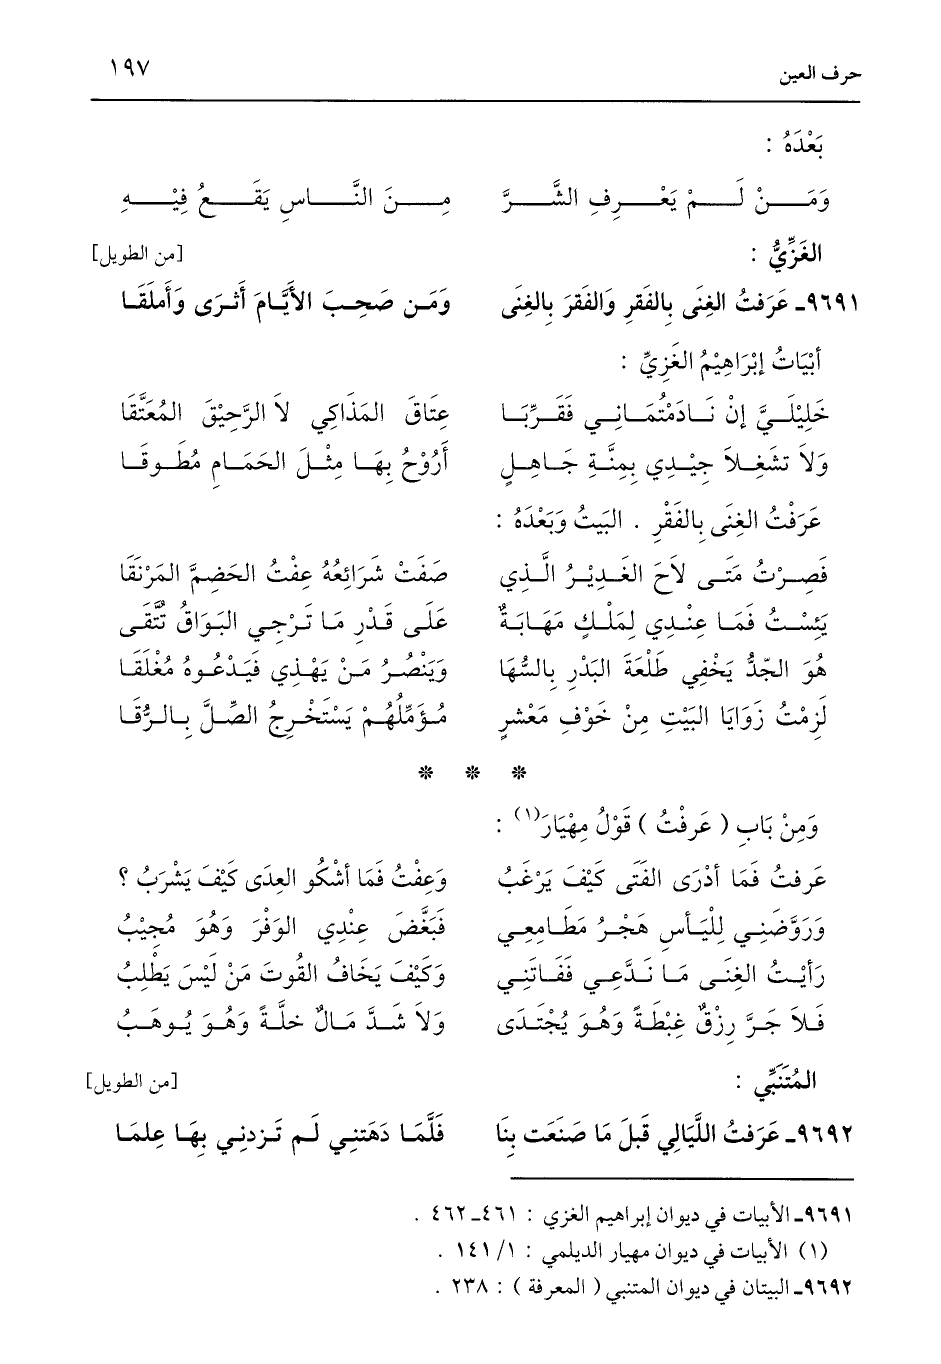 حرف العين ١٩٧
بَعْدَهُ :
وَمَنْ لَمْ يَعْرِفِ الشَّرَّ مِنَ النَّاسِ يَقَعُ فِيْهِ
الغَزِّيُّ : [من الطويل]
٩٦٩١ـ عَرَفتُ الغِنَى بِالفَقرِ وَالفَقرَ بِالغِنَى وَمَن صَحِبَ الأَيَّامَ أَثرَى وَأَملَقَا
أَبْيَاتُ إِبْرَاهِيْمُ الغَزِيِّ :
خَلِيْلَيَّ إِنْ نَادَمْتُمَانِي فَقَرِّبَا عِتَاقَ المَذَاكِي لاَ الرَّحِيْقَ المُعَتَّقَا
وَلاَ تَشغِلاَ جِيْدِي بِمِنَّةِ جَاهِلٍ أَرُوْحُ بِهَا مِثْلَ الحَمَامِ مُطَوقَا
عَرَفْتُ الغِنَى بِالفَقْرِ . البَيتُ وَبَعْدَهُ :
فَصِرْتُ مَتَى لاَحَ الغَدِيْرُ الَّذِي صَفَتْ شَرَائِعُهُ عِفْتُ الخَضِمَّ المَرْنَقَا
يَئِسْتُ فَمَا عِنْدِي لِمَلْكٍ مَهَابَةٌ عَلَى قَدْرِ مَا تَرْجِي البَوَاقُ تُتَّقَى
هُوَ الجّدُّ يَخْفِي طَلْعَةَ البَدْرِ بِالسُّهَا وَيَنْصُرُ مَنْ يَهْذِي فَيَدْعُوهُ مُغْلَقَا
لَزِمْتُ زَوَايَا البَيْتِ مِنْ خَوْفِ مَعْشرٍ مُؤَمِّلُهُمْ يَسْتَخْرِجُ الصِّلَّ بِالرُّقَا
* * *
وَمِنْ بَابِ ( عَرفْتُ ) قَوْلُ مِهْيَارَ(١) :
عَرفتُ فَمَا أَدْرَى الفَتَى كَيْفَ يَرْغَبُ وَعِفْتُ فَمَا أَشْكُو العِدَى كَيْفَ يَشْرَبُ ؟
وَرَوَّضَنِي لِلْيَأْسِ هَجْرُ مَطَامِعِي فَبَغَّضَ عِنْدِي الوَفْرَ وَهُوَ مُجِيْبُ
رَأَيْتُ الغِنَى مَا نَدَّعِي فَفَاتَنِي وَكَيْفَ يَخَافُ القُوتَ مَنْ لَيْسَ يَطْلِبُ
فَلاَ جَرَّ رِزْقٌ غِبْطَةً وَهُوَ يُجْتَدَى وَلاَ شَدَّ مَالٌ خلَّةً وَهُوَ يُوهَبُ
المُتَنَبِّي : [من الطويل]
٩٦٩٢ـ عَرَفتُ اللَّيَالِي قَبلَ مَا صَنَعَت بِنَا فَلَّمَا دَهَتنِي لَم تَزدنِي بِهَا عِلمَا
٩٦٩١ـ الأبيات في ديوان إبراهيم الغزي : ٤٦١ـ ٤٦٢ .
(١) الأبيات في ديوان مهيار الديلمي : ١/ ١٤١ .
٩٦٩٢ـ البيتان في ديوان المتنبي ( المعرفة ) : ٢٣٨ .